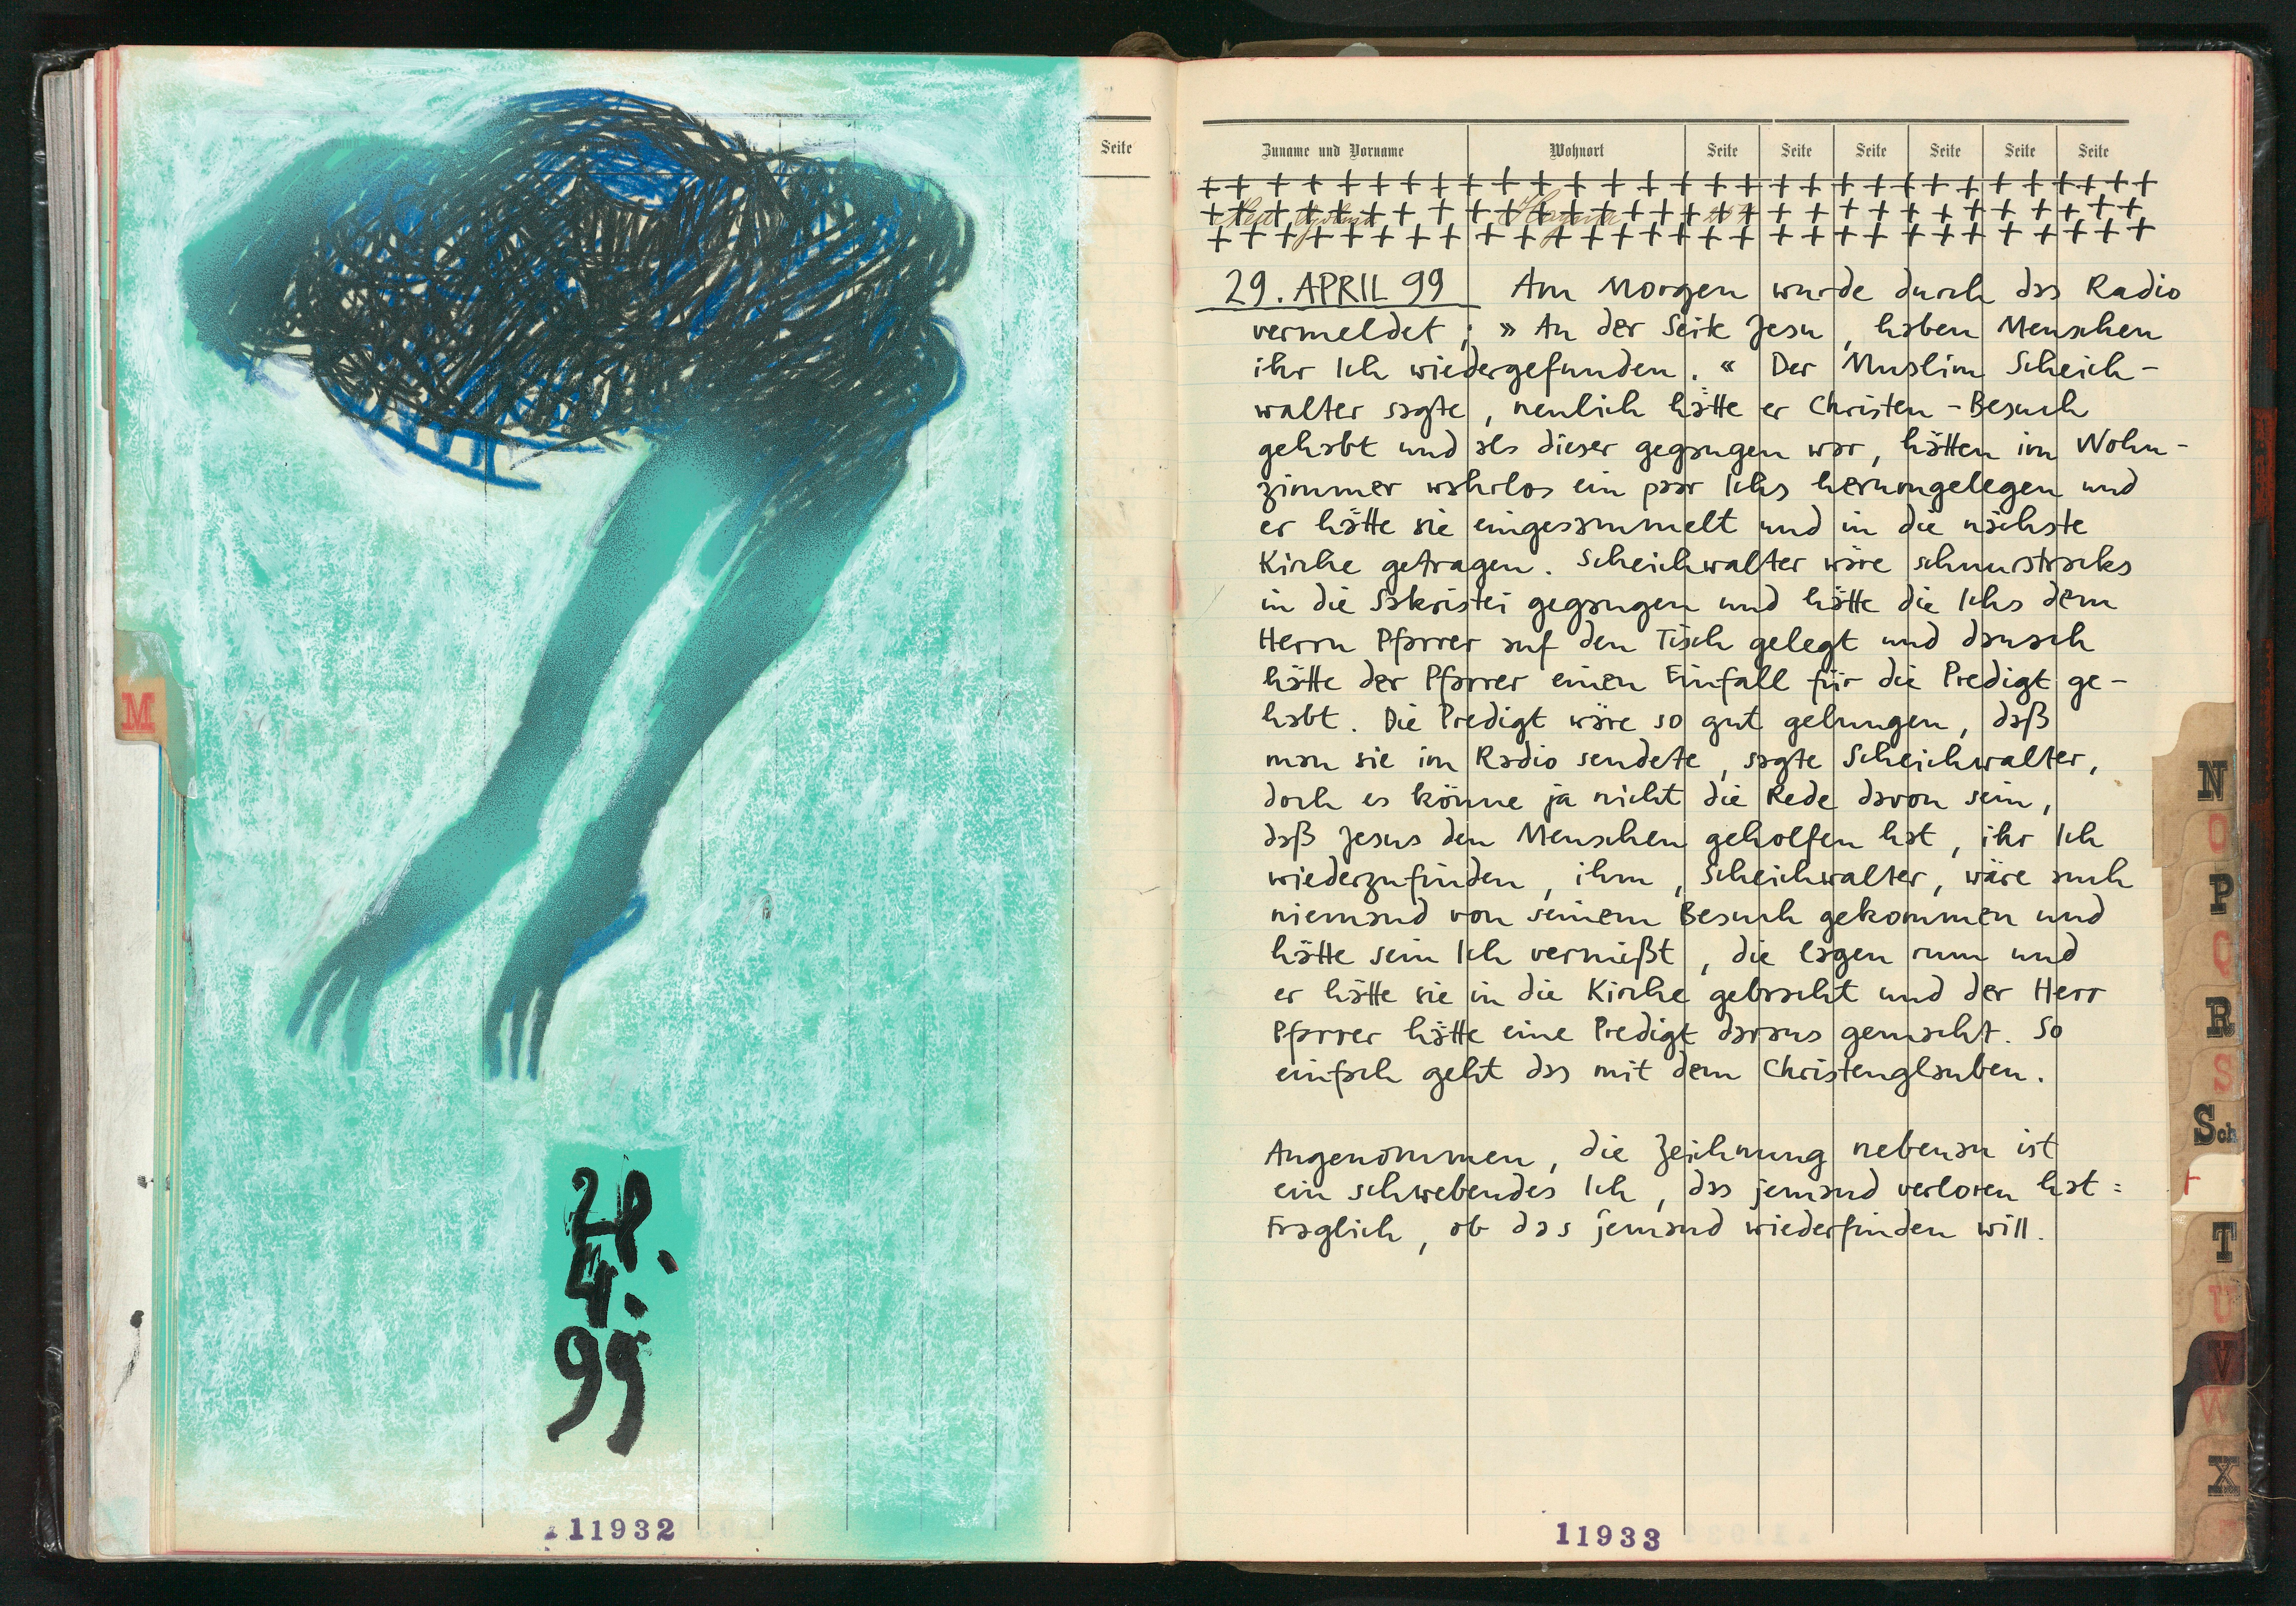 Seite
M
29.
4.
99
11932
Zuname und Vorname Wohnort Seite Seite Seite Seite Seite Seite
29. APRIL 99 Am Morgen wurde durch das Radio
vermeldet: » An der Seite Jesu, haben Menschen
ihr Ich wiedergefunden. « Der Muslim Scheich-
walter sagte, neulich hätte er Christen-Besuch
gehabt und als dieser gegangen war, hätten im Wohn-
zimmer wahllos ein paar Ichs herumgelegen und
er hätte sie eingesammelt und in die nächste
Kirche getragen. Scheichwalter wäre schnurstracks
in die Sakristei gegangen und hätte die Ichs dem
Herrn Pfarrer auf den Tisch gelegt und danach
hätte der Pfarrer einen Einfall für die Predigt ge-
habt. Die Predigt wäre so gut gelungen, daß
man sie im Radio sendete, sagte Scheichwalter,
doch es könne ja nicht die Rede davon sein,
daß Jesus den Menschen geholfen hat, ihr Ich
wiederzufinden, ihm, Scheichwalter, wäre auch
niemand von seinem Besuch gekommen und
hätte sein Ich vermißt, die lagen rum und
er hätte sie in die Kirche gebracht und der Herr
Pfarrer hätte eine Predigt daraus gemacht. So
einfach geht das mit dem Christenglauben.
Angenommen, die Zeichnung nebenan ist
ein schwebendes Ich, das jemand verloren hat:
Fraglich, ob das jemand wiederfinden will.
11933
N
O
P
Q
R
S
Sch
T
U
V
W
X